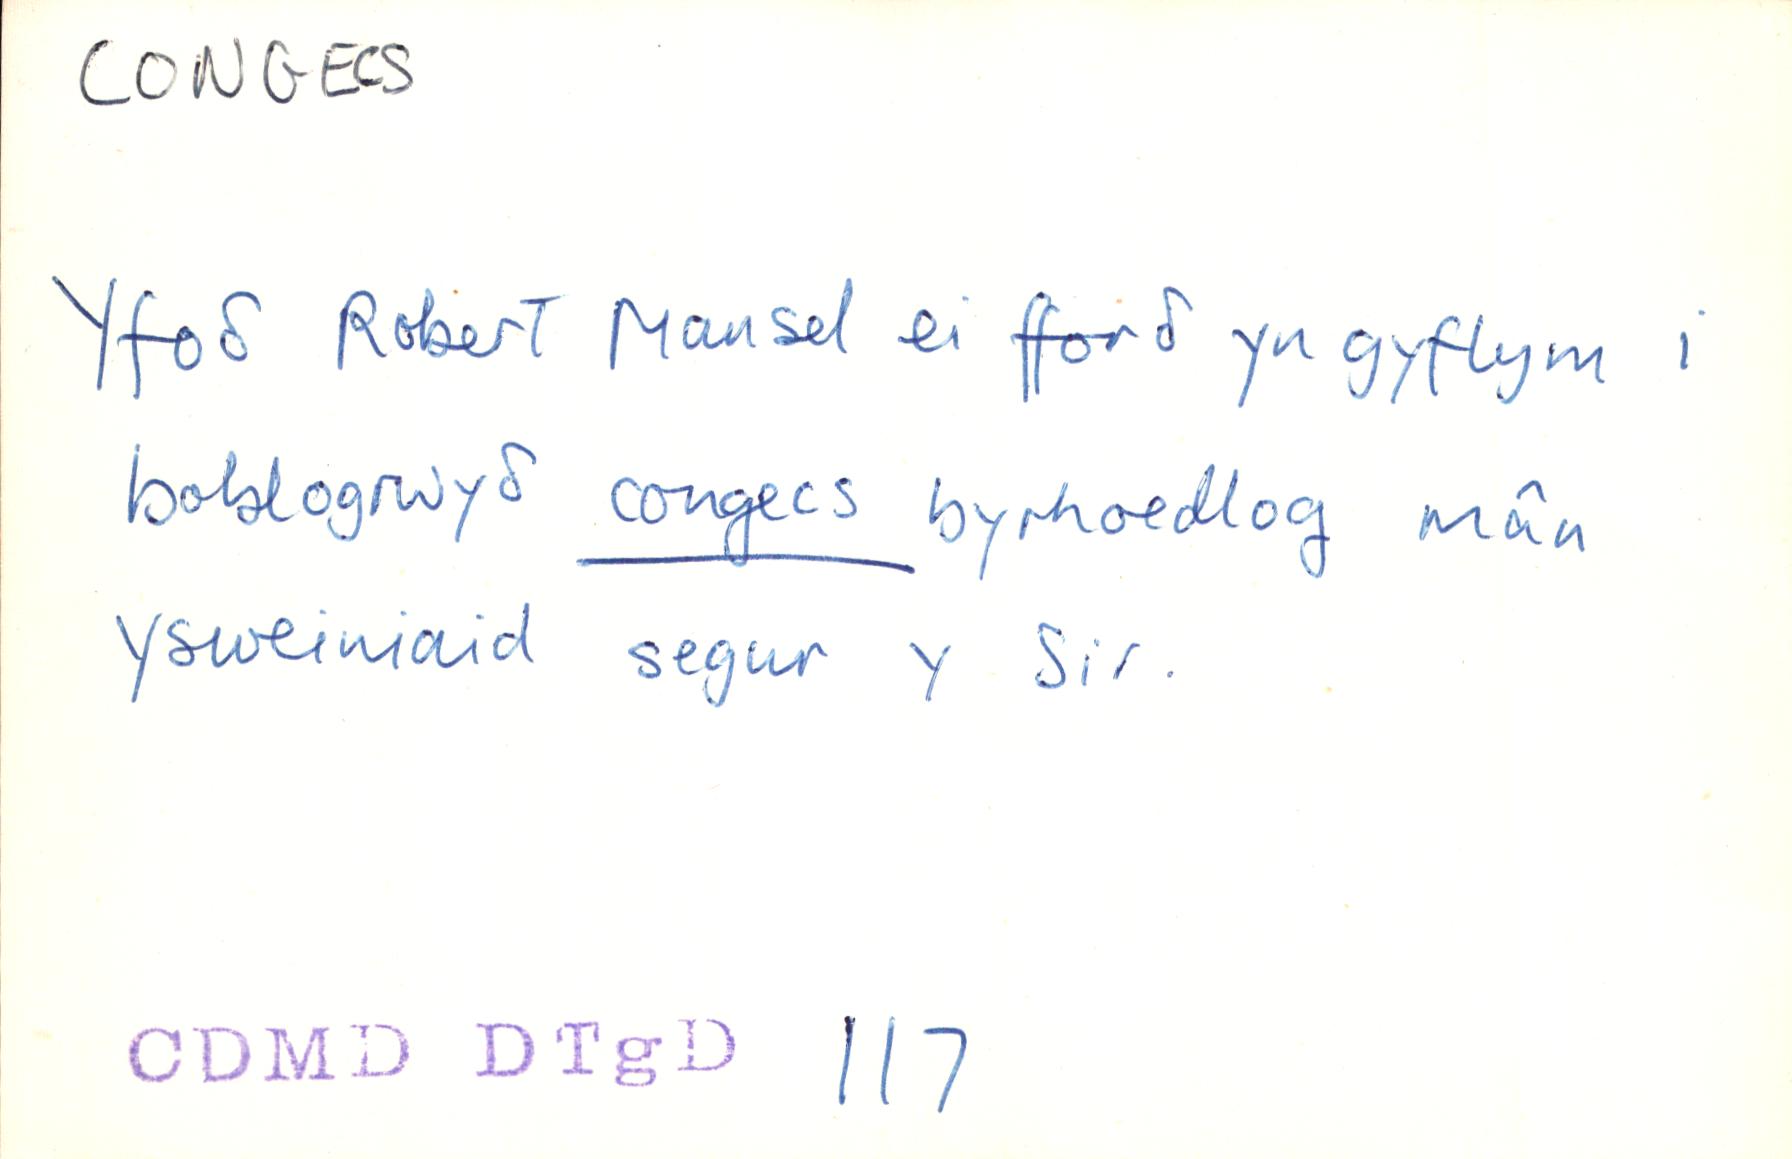 CONGECS
Yfoδ Robert Mansel ei fforδ yn gyflym i
boblogrwyδ congecs byrhoedlog mân
ysweiniaid segur y Sir.
CDMD DTgD 117